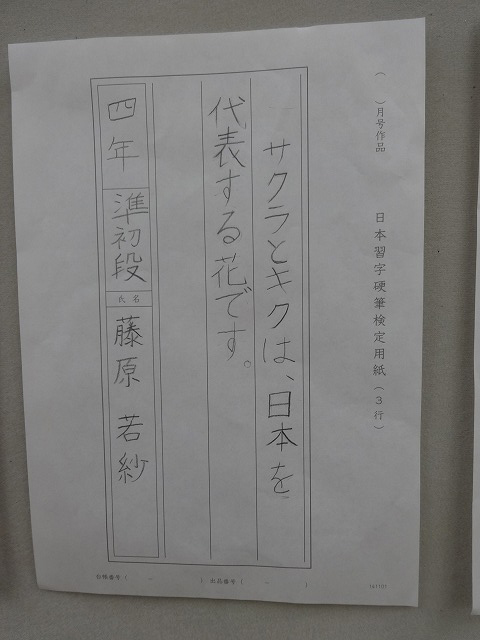 （　　）月号作品　日本習字硬筆検定用紙（３行）
サクラとキクは、日本を
代表する花です。
四年 準初段 氏名 藤原 若紗
出品番号（　－　）